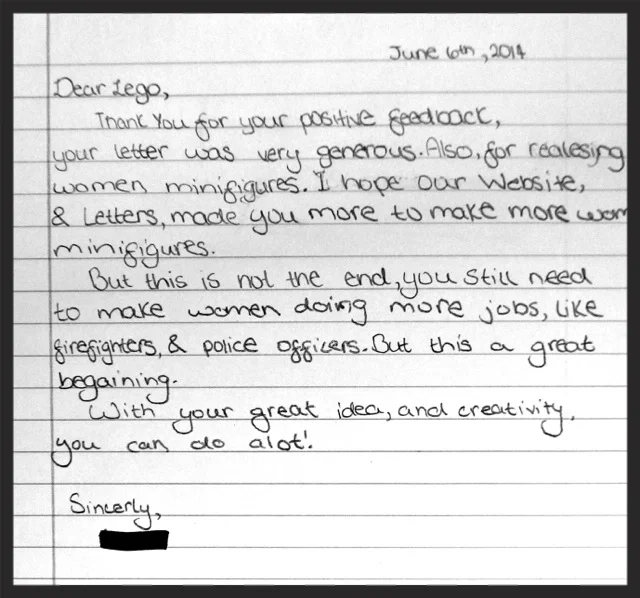 June 6th, 2014
Dear Lego,
Thank You for your positive feedback,
your letter was very generous. Also, for realesing
women minifigures. I hope our Website,
& Letters, made you more to make more wom
minifigures.
But this is not the end, you still need
to make women doing more jobs, like
firefighters, & police officers. But this a great
begaining.
With your great idea, and creativity,
you can do alot!
Sincerly,